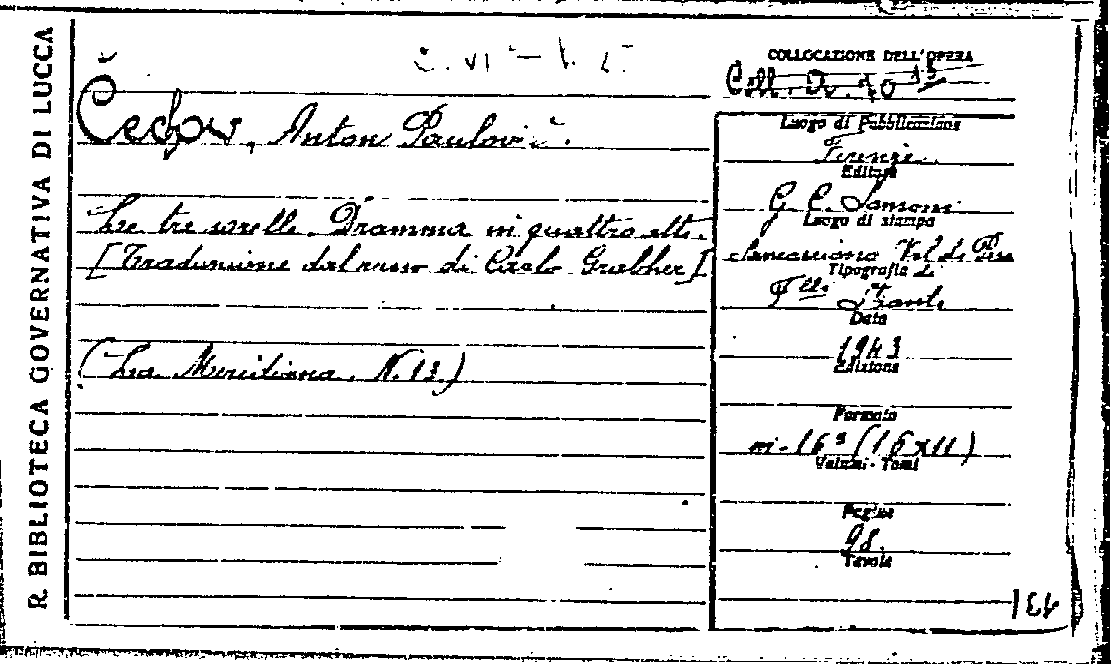 R. BIBLIOTECA GOVERNATIVA DI LUCCA
Čechov, Anton Pavlovič.
Le tre sorelle. Dramma in quattro atti.
[Traduzione dal russo di Carlo Grabher]
(La Meridiana. N. 13.)
COLLOCAZIONE DELL'OPERA
Coll. Dr. 40
Luogo di Pubblicazione
Firenze
Editore
G. C. Sansoni
Luogo di stampa
Sancasciano Val di Pesa
Tipografia di
F.lli Stianti
Data
1943
Edizione
Formato
in-16° (16x11)
Volumi - Tomi
Pagine
98.
Tavole